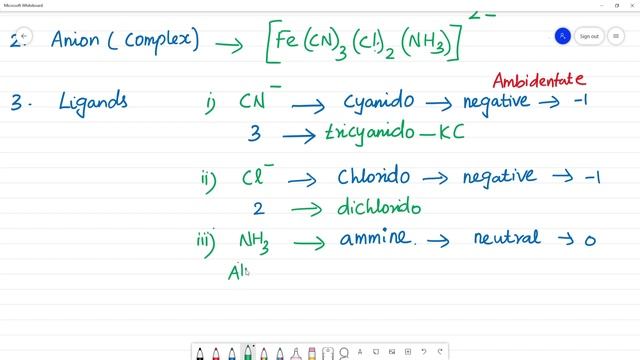 Microsoft Whiteboard
Sign out
2. Anion (Complex) → [Fe(CN)3(Cl)2(NH3)]2-
Ambidentate
3. Ligands i) CN- → cyanido → negative → -1
3 → tricyanido - KC
ii) Cl- → Chlorido → negative → -1
2 → dichlorido
iii) NH3 → ammine. → neutral → 0
Al